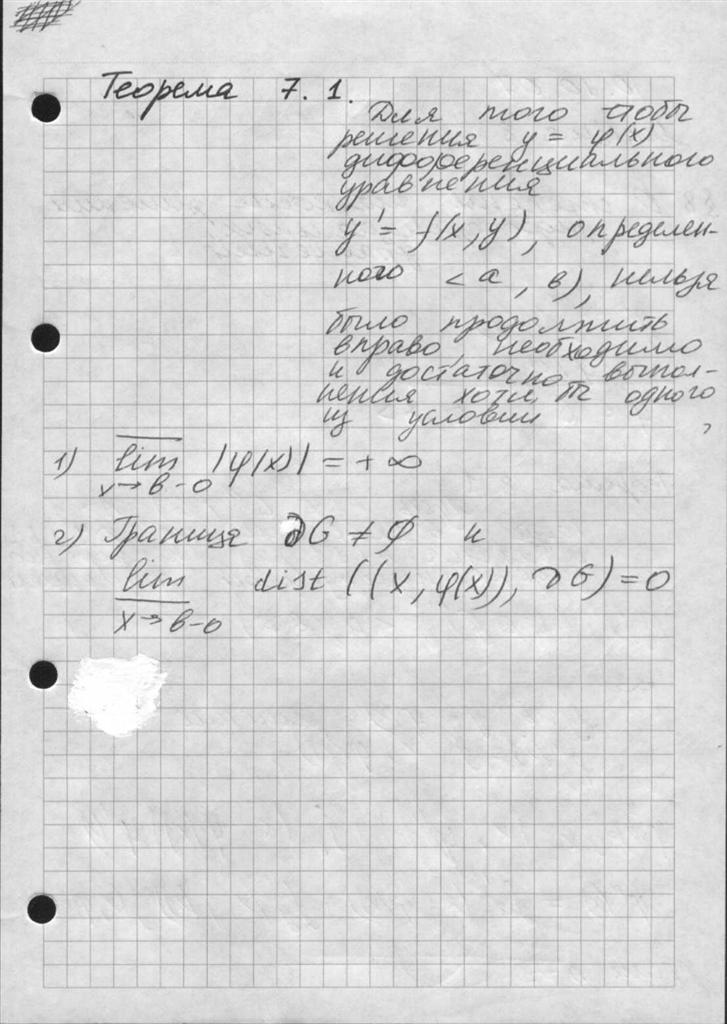 Теорема 7.1.
Для того чтобы
решения y = φ(x)
дифференциального
уравнения
y' = f(x, y), определен-
ного <a, в), нельзя
было продолжить
вправо необходимо
и достаточно выпол-
нения хотя бы одного
из условий
1) \overline{lim}_{x→в-0} |φ(x)| = +∞
2) Граница ∂G ≠ ∅ и
\underline{lim}_{x→в-0} dist ((x, φ(x)), ∂G) = 0